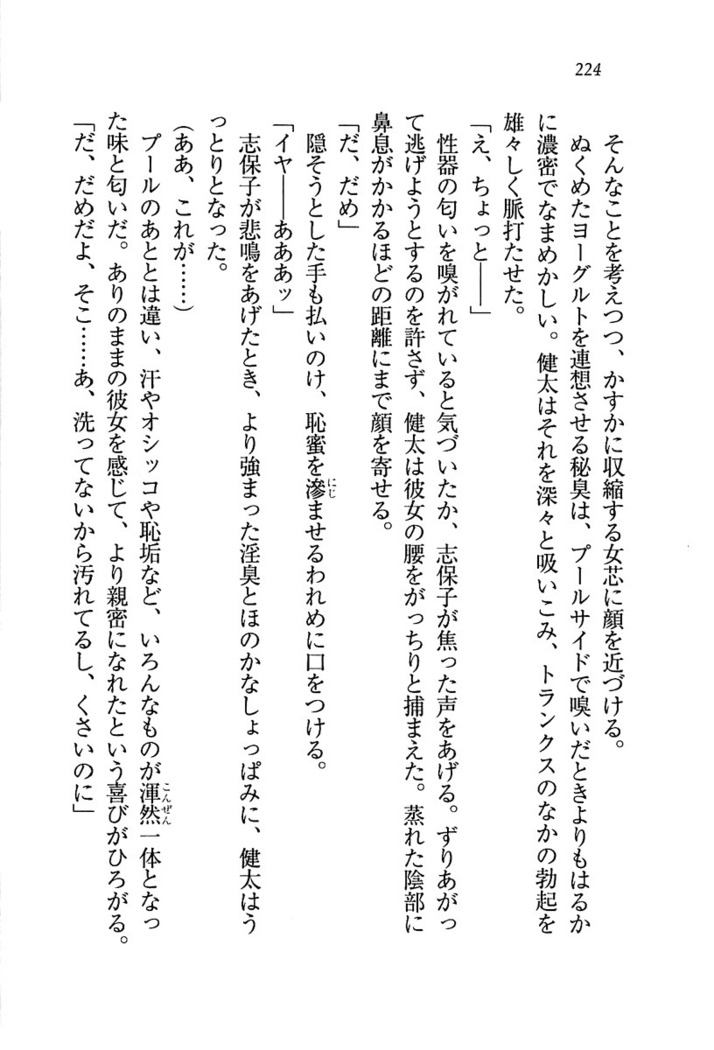 224
そんなことを考えつつ、かすかに収縮する女芯に顔を近づける。
ぬくめたヨーグルトを連想させる秘臭は、プールサイドで嗅いだときよりもはるか
に濃密でなまめかしい。健太はそれを深々と吸いこみ、トランクスのなかの勃起を
雄々しく脈打たせた。
「え、ちょっと――」
性器の匂いを嗅がれていると気づいたか、志保子が焦った声をあげる。ずりあがっ
て逃げようとするのを許さず、健太は彼女の腰をがっちりと捕まえた。蒸れた陰部に
鼻息がかかるほどの距離にまで顔を寄せる。
「だ、だめ」
隠そうとした手も払いのけ、恥蜜を滲ませるわれめに口をつける。
にじ
「イヤ――あああッ」
志保子が悲鳴をあげたとき、より強まった淫臭とほのかなしょっぱみに、健太はう
っとりとなった。
(ああ、これが……)
プールのあととは違い、汗やオシッコや恥垢など、いろんなものが渾然一体となっ
こんぜん
た味と匂いだ。ありのままの彼女を感じて、より親密になれたという喜びがひろがる。
「だ、だめだよ、そこ……あ、洗ってないから汚れてるし、くさいのに」